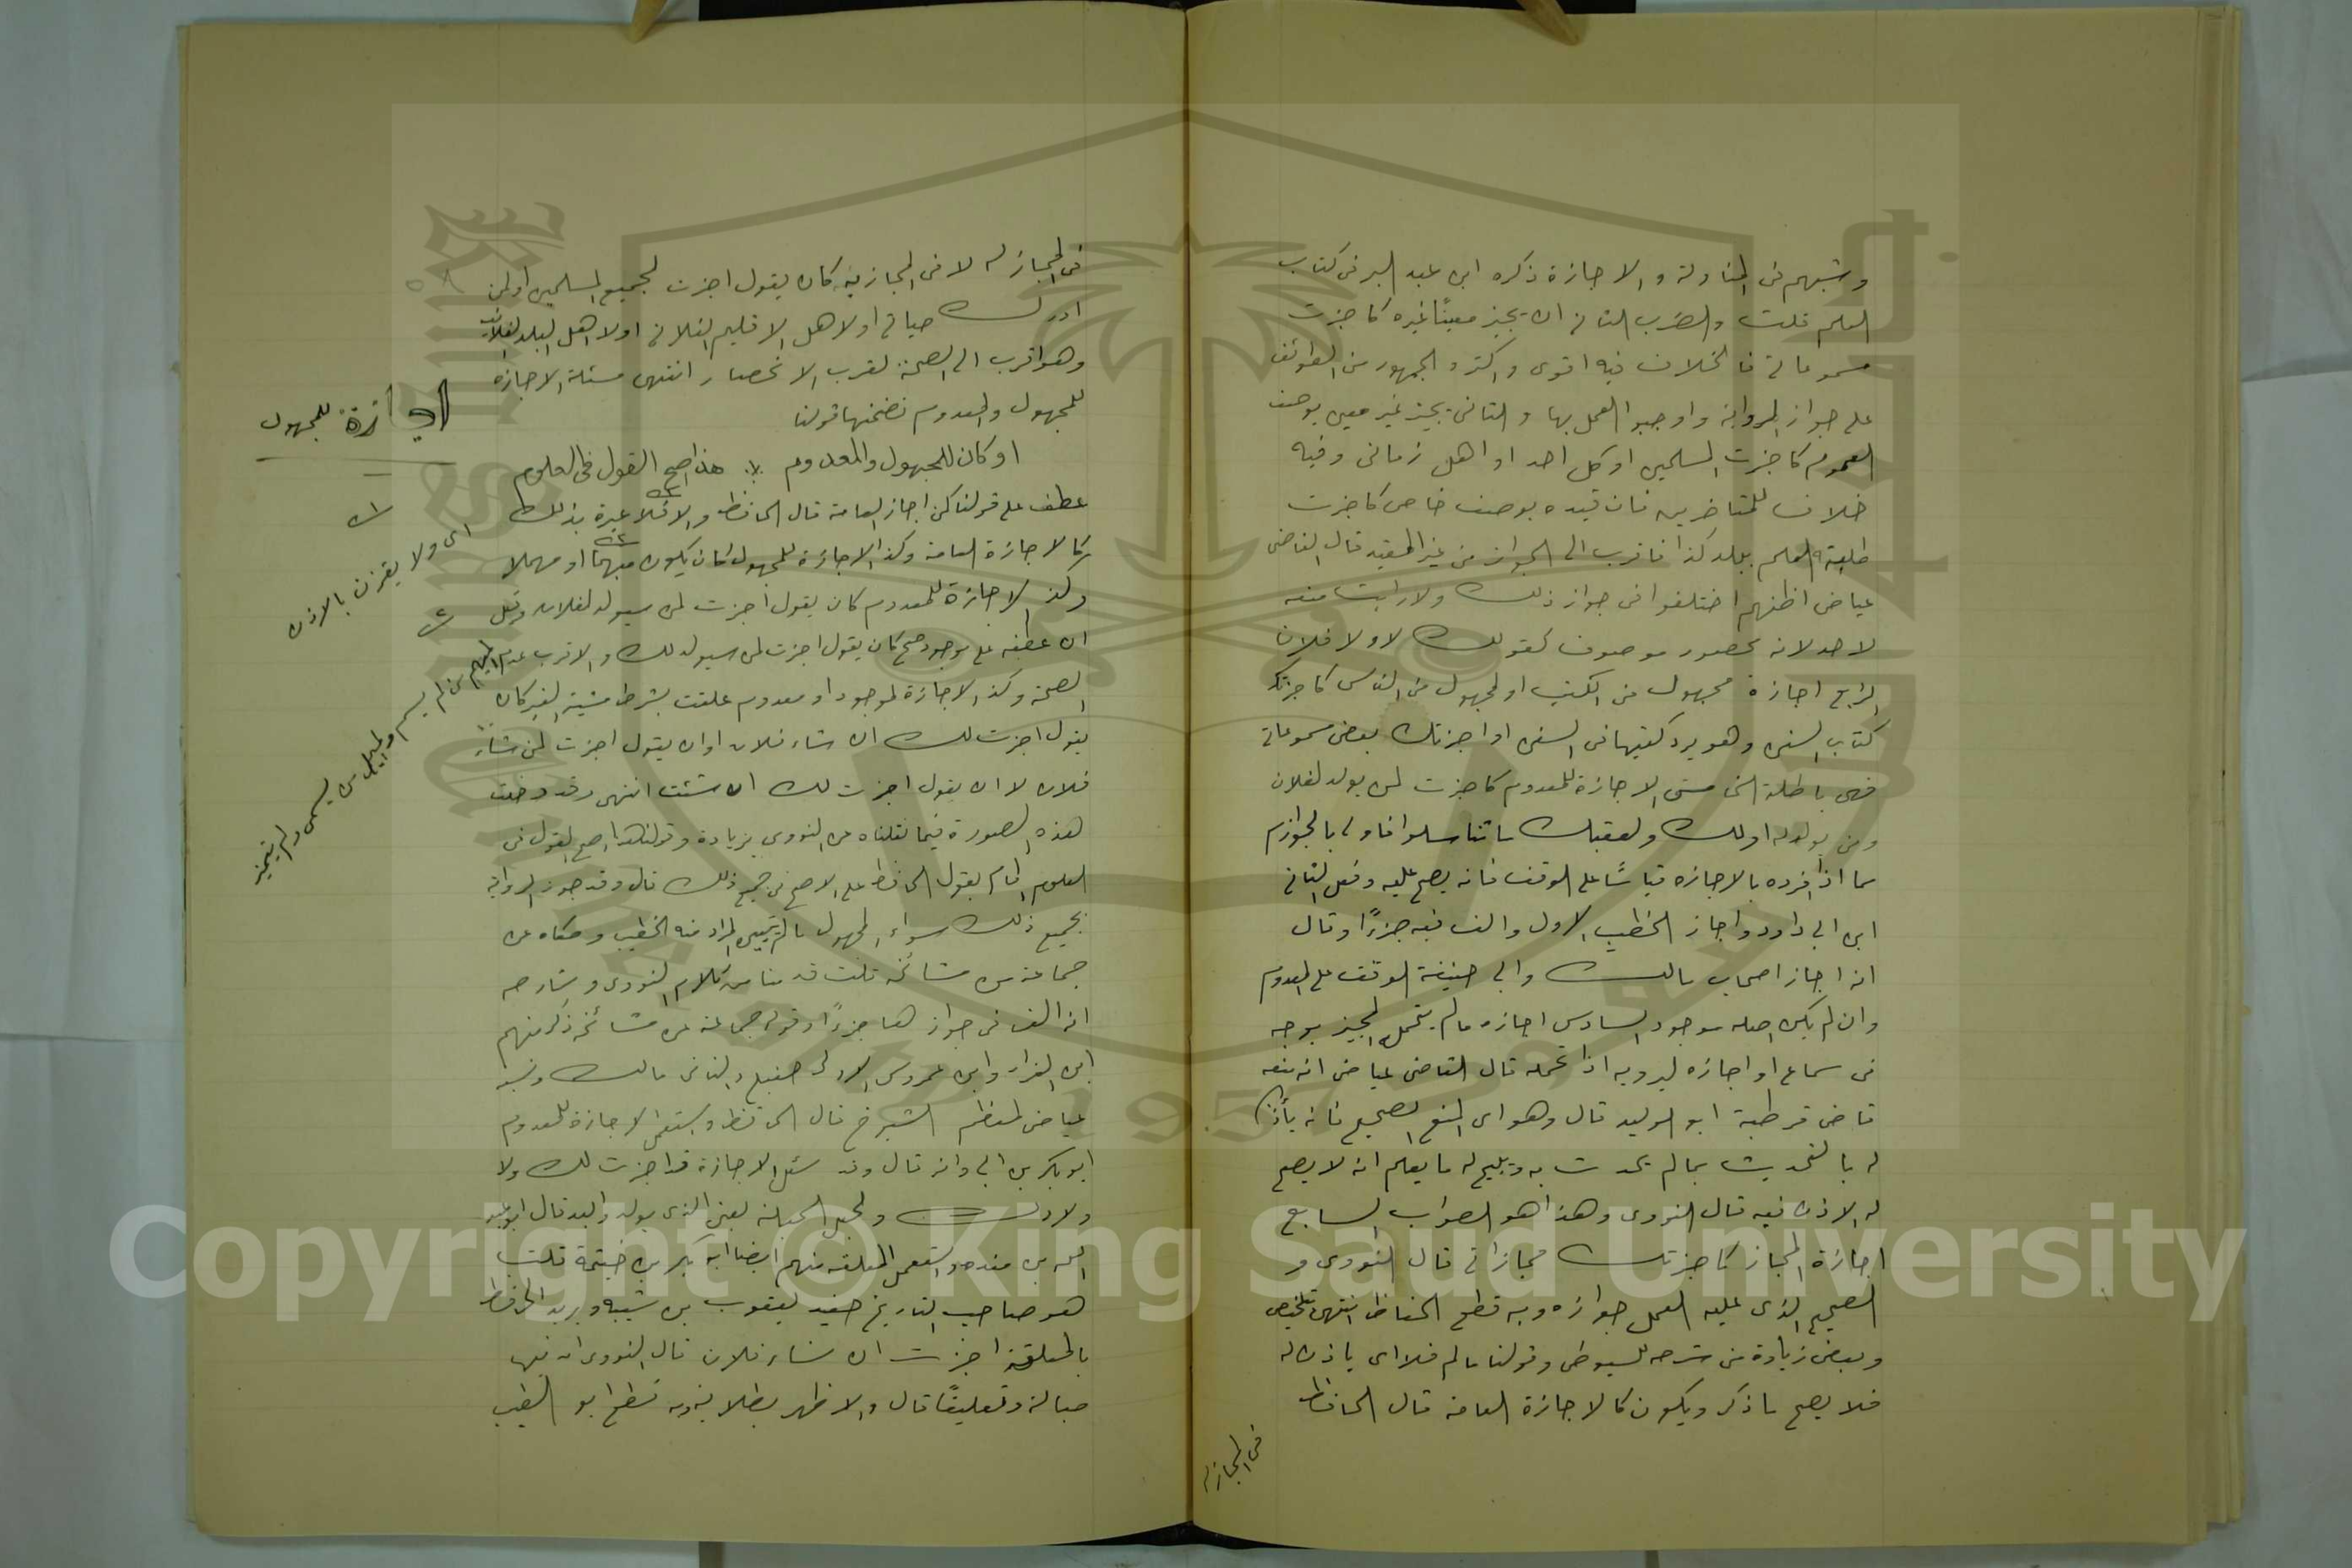 وشبههم في المناولة والاجازة ذكره ابن عبد البر في كتاب
العلم قلت والضرب الثاني ان يجيز معينًا غيره كاجزت
مسموعاتي فالخلاف فيه اقوى واكثر والجمهور من الطوائف
على جواز الرواية واوجبوا العمل بها والثاني يجيز غير معين بوصف
العموم كاجزت المسلمين او كل احد او اهل زماني وفيه
خلاف للمتاخرين فان قيده بوصف خاص كاجزت
طلبة العلم ببلد كذا فاقرب الى الجواز من غير المقيد قال القاضي
عياض اظنهم اختلفوا في جواز ذلك ولا رايت منعه
لاحد لانه محصور موصوف كقولك لاولاد فلان
الرابع اجازة مجهول من الكتب او لمجهول من الناس كاجزتك
كتاب السنن وهو يروي كتبا في السنن او اجزتك بعض مسموعاتي
فهي باطلة الخامس الاجازة للمعدوم كاجزت لمن يولد لفلان
ومن يولد له او لك ولعقبك ما تناسلوا فاولى بالجواز
مما اذا افرده بالاجازه قياسًا على الوقف فانه يصح عليه وفعل الثاني
ابن ابي داود واجاز الخطيب الاول والف فيه جزءًا وقال
انه اجاز اصحاب مالك وابي حنيفة الوقف على المعدوم
وان لم يكن اصله موجود السادس اجازه ما لم يتحمل المجيز بوجه
من سماع او اجازه ليرويه اذا تحمله قال القاضي عياض انه منعه
قاضي قرطبة ابو الوليد قال وهو اي المنع الصحيح فانه يأذن
له بالتحديث بما لم يحدث به ويبيح له ما يعلم انه لا يصح
له الاذن فيه قال النووي وهذا هو الصواب السابع
اجازة المجاز كاجزتك مجازاتي قال النووي و
الصحيح الذي عليه العمل جوازه وبه قطع الحفاظ انتهى تلخيص
وبعض زيادة من شرحه للسيوطي وقولنا ما لم فلا اي ياذن له
فلا يصح ما ذكر ويكون كالاجازة العامة قال الحافظ
في المجاز له
في المجاز له لا في المجاز فيه كان يقول اجزت لجميع المسلمين او لمن
ادرك حياتي او لاهل الاقليم الفلاني او لاهل البلد الفلانية
وهو اقرب الى الصحة لقرب الانحصار انتهى مسئلة الاجازه
للمجهول والمعدوم تضمنها قولنا
او كان للمجهول والمعدوم ∴ هذا اصح القول في العلوم
عطف على قولنا كمن اجاز العامة قال الحافظ والا فلا عبرة بذلك
كالاجازة العامة وكذا الاجازة للمجهول كان يكون مبهمًا او مهملا
وكذا الاجازة للمعدوم كان يقول اجزت لمن سيولد لفلان وقيل
ان عطفه على موجود صح كان يقول اجزت لك ولمن سيولد لك والاقرب عدم
الصحة وكذا الاجازة لموجود او معدوم علقت بشرط مشيئة الغير كان
يقول اجزت لك ان شاء فلان او ان يقول اجزت لمن شاء
فلان لا ان يقول اجزت لك ان شئت انتهى وقد دخلت
هذه الصورة فيما نقلناه من النووي بزيادة وقولنا هذا اصح القول في
العلوم المام بقول الحافظ على الاصح في جميع ذلك قال وقد جوز الرواية
بجميع ذلك سواء المجهول ما لم يتبين المراد منه الخطيب وحكاه عن
جماعة من مشائخه قلت قدمنا من كلام النووي وشارحه
انه الف في جواز هذا جزءًا وقوله جماعة من مشائخه ذكر منهم
ابن الفراء وابن عمروس الاول حنبلي والثاني مالك ونسبه
عياض لمعظم الشيوخ قال الحافظ واستعمل الاجازة للمعدوم
ابو بكر بن ابي داود قال وقد سئل الاجازة قد اجزت لك ولا
ولادك ولحبل الحبلة يعني الذي يولد بعد قال ابو عبد
الله بن منده واستعمل المعلقة منهم ايضا ابو بكر بن خيثمة قلت
هو صاحب التاريخ حفيد يعقوب بن شيبة ويريد الحافظ
بالمعلقة اجزت ان شاء فلان قال النووي ان فيها
جهالة وتعليقًا قال والاظهر بطلانه وبه قطع ابو الطيب
الاجازة للمجهول
اي ولا يقترن بالاذن
المبهم من لم يسم والمهمل من يسمى ولم يتميز
Copyright © King Saud University
1957